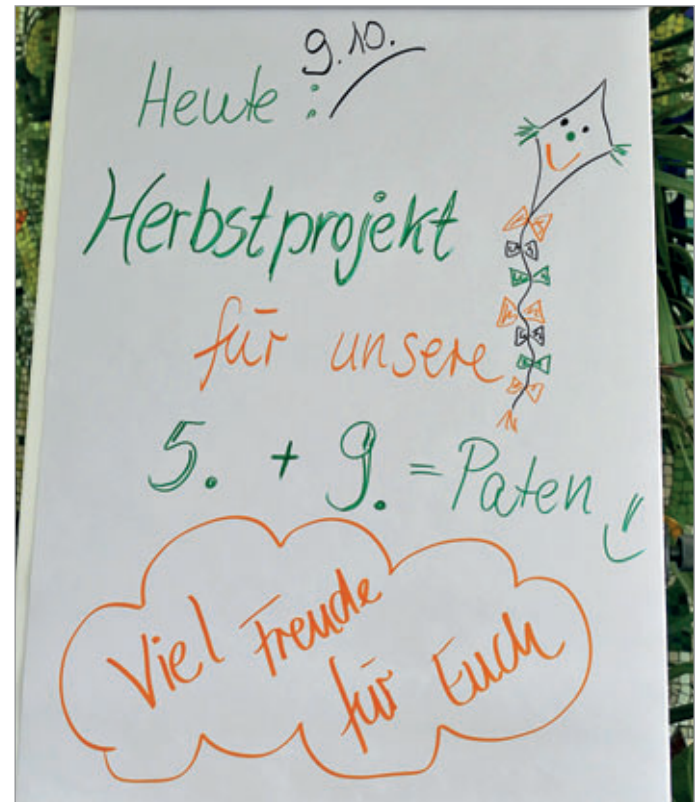 9.10.
Heute :
Herbstprojekt
für unsere
5. + 9. = Paten
Viel Freude
für Euch